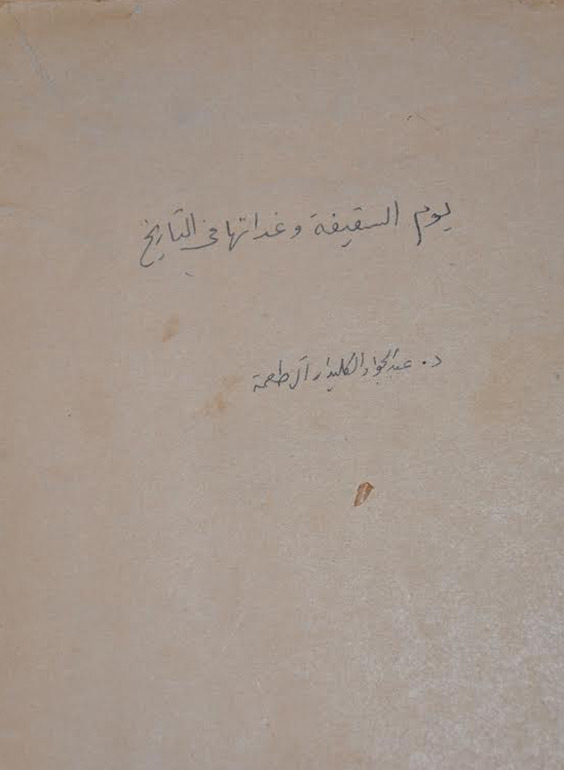 يوم السقيفة وغداتها في التاريخ
د. عبد الجواد الكليدار آل طعمة